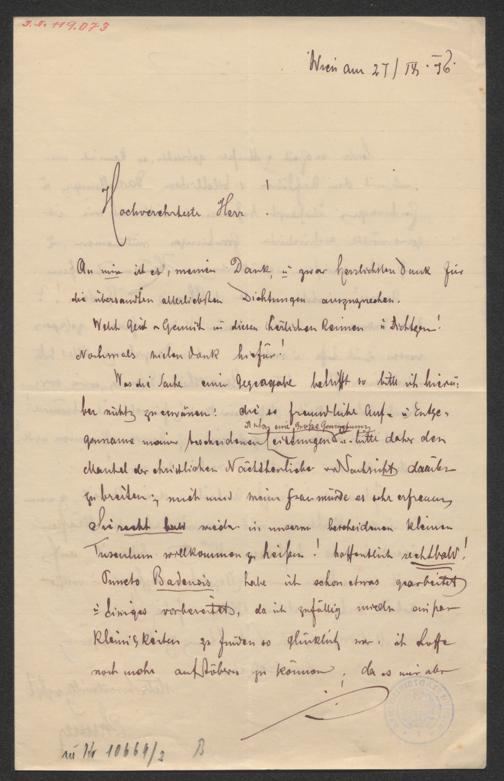 I.N. 119.073
Wien am 27/IX. 96.
Hochverehrtester Herr!
An mir ist es, meinen Dank, u zwar herzlichsten Dank für
die übersandten allerliebsten Dichtungen auszusprechen.
Welch Geist u Gemüth in diesen herlichen Reimen u Dichtgen!
Nochmals vielen Dank hiefür!
Was die Sache einer Gegengabe betrifft so bitte ich hierü-
ber nichts zu erwänen! die so freundliche Auf- u Entge-
gennahme meiner bescheidenen Leistungen
ist ja eine große Genugthuung
u bitte daher den
Mantel der christlichen Nächstenliebe u Nachsicht darüber
zu breiten; mich und meine Frau würde es sehr erfreuen
Sie recht bald wieder in unserm bescheidenen kleinen
Tusculum willkommen zu heißen! hoffentlich recht bald!
Puncto Badensis habe ich schon etwas gearbeitet
u Einiges vorbereitet, da ich zufällig wieder ein paar
Kleinigkeiten zu finden so glücklich war. ich hoffe
noch mehr aufstöbern zu können, da es mir aber
zu Nr 10664/2 B